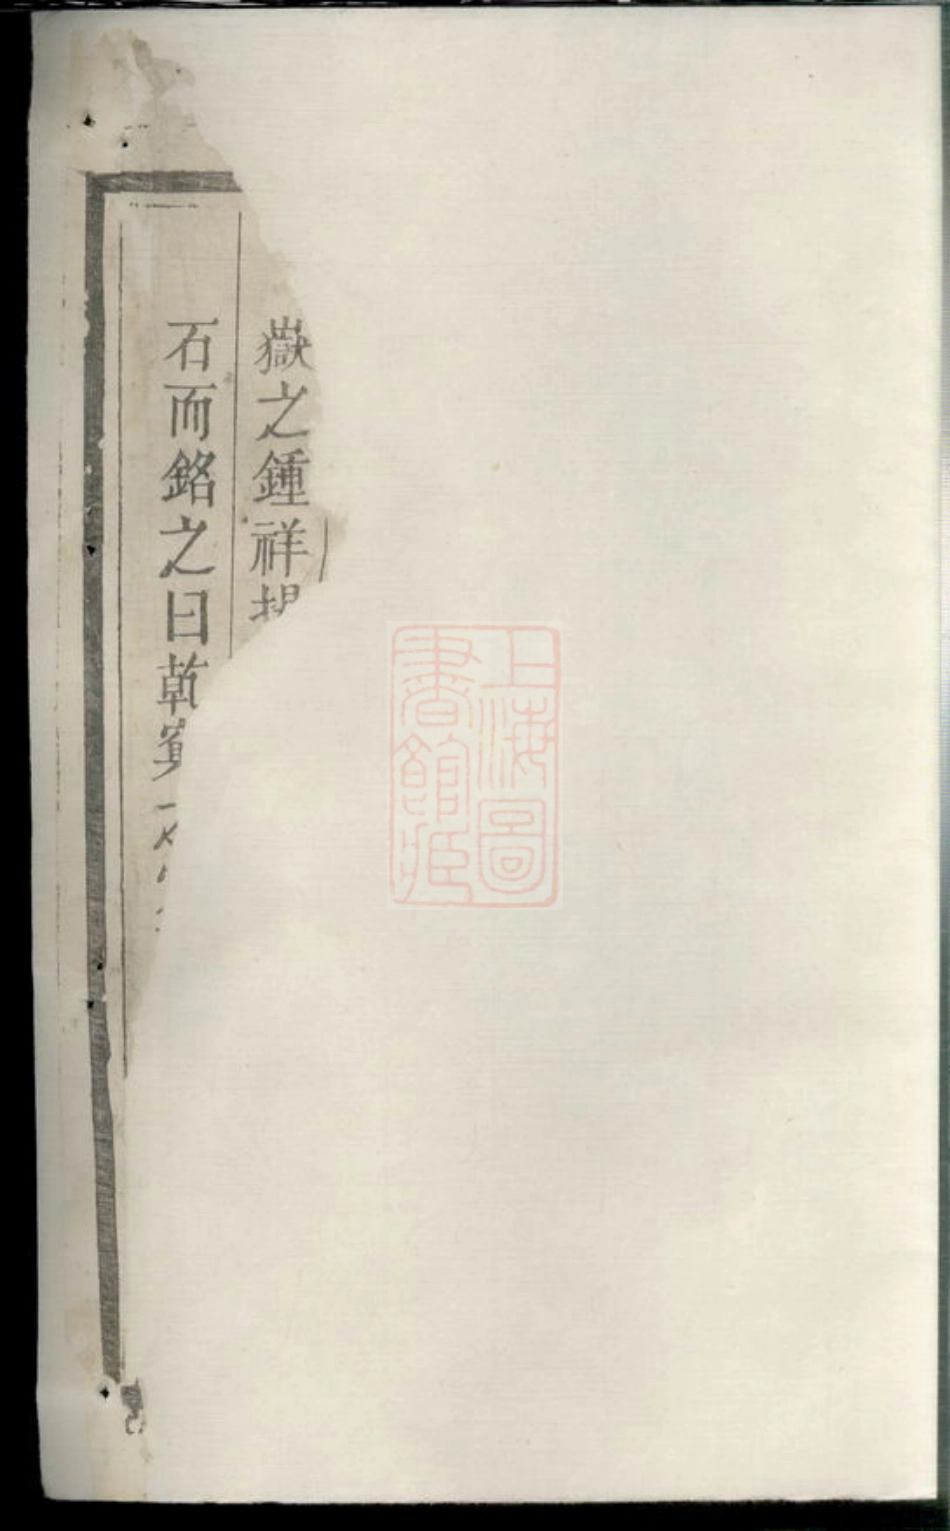 嶽之鍾祥
石而銘之曰乾
上海圖
書館藏